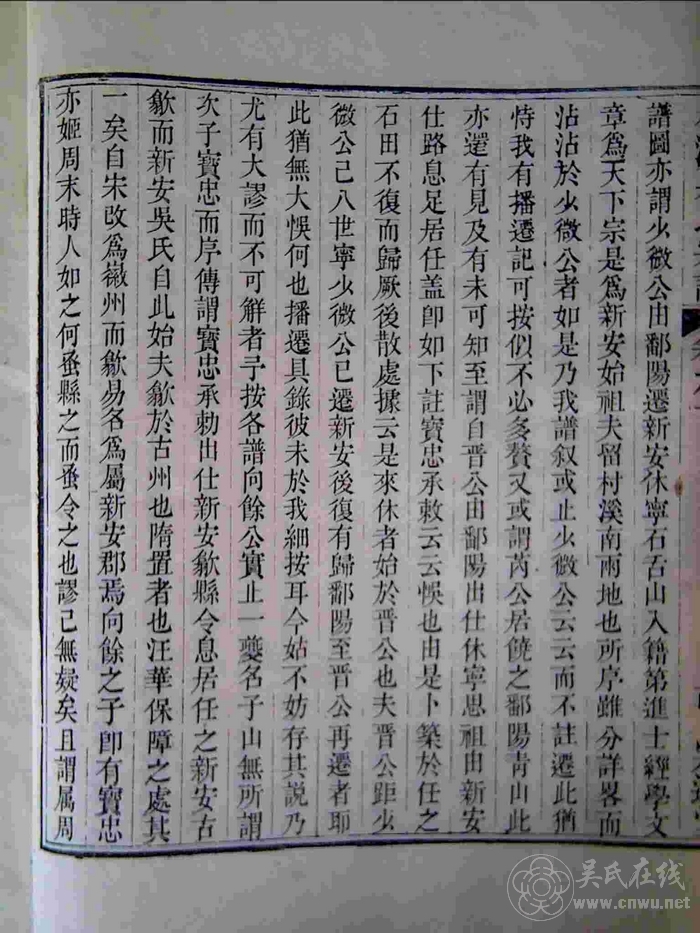 譜圖亦謂少微公由鄱陽遷新安休寧石舌山入籍第進士經學文
章爲天下宗是爲新安始祖夫留村溪南兩地也所序雖分詳畧而
沾沾於少微公者如是乃我譜叙或止少微公云云而不註遷此猶
恃我有播遷記可按似不必多贅又或謂芮公居饒之鄱陽青山此
亦還有見及有未可知至謂自晋公由鄱陽出仕休寧思祖由新安
仕路息足居任盖卽如下註寶忠承敕云云悞也由是卜築於任之
石田不復而歸厥後散處據云是來休者始於晋公也夫晋公距少
微公已八世寧少微公已遷新安後復有歸鄱陽至晋公再遷者耶
此猶無大悞何也播遷具錄彼未於我細按耳今姑不妨存其説乃
尤有大謬而不可觧者予按各譜向餘公實止一夔名子山無所謂
次子寶忠而序傳謂寶忠承勅出仕新安歙縣令息居任之新安古
歙而新安吳氏自此始夫歙於古州也隋置者也汪華保障之處其
一矣自宋改爲徽州而歙易名爲屬新安郡焉向餘之子卽有寶忠
亦姬周末時人如之何蚤縣之而蚤令之也謬已無疑矣且謂属周
吴氏在线
www.cnwu.net